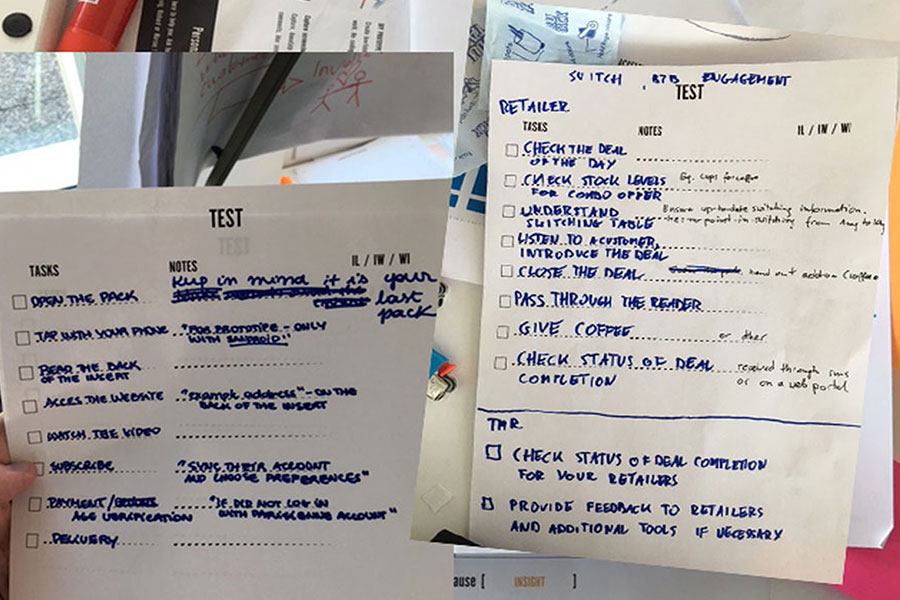 TEST
TASKS NOTES IL / IW / WI
OPEN THE PACK Keep in mind it is your
last
pack
TAP WITH YOUR PHONE "FOR PROTOTYPE - ONLY
WITH ANDROID"
READ THE BACK
OF THE INSERT
ACCES THE WEBSITE "Example address" - ON THE
BACK OF THE INSERT
WATCH THE VIDEO
SUBSCRIBE "SYNC THEIR ACCOUNT
AND CHOOSE PREFERENCES"
PAYMENT/
AGE VERIFICATION "IF DID NOT LOG IN
WITH PARISIENNE ACCOUNT"
DELIVERY
SWITCH B2B ENGAGEMENT
TEST
RETAILER
TASKS NOTES IL / IW / WI
CHECK THE DEAL
OF THE DAY
CHECK STOCK LEVELS Eg. cups for coffee
FOR COMBO OFFER
UNDERSTAND Ensure up-to-date switching information.
SWITCHING TABLE point-in-switching from
LISTEN TO A CUSTOMER,
INTRODUCE THE DEAL
CLOSE THE DEAL hand out add-on (coffee
PASS THROUGH THE READER
GIVE COFFEE or other
CHECK STATUS OF DEAL received through sms
COMPLETION or on a web portal
TMR
CHECK STATUS OF DEAL COMPLETION
FOR YOUR RETAILERS
PROVIDE FEEDBACK TO RETAILERS
AND ADDITIONAL TOOLS IF NECESSARY
ause [ INSIGHT ]